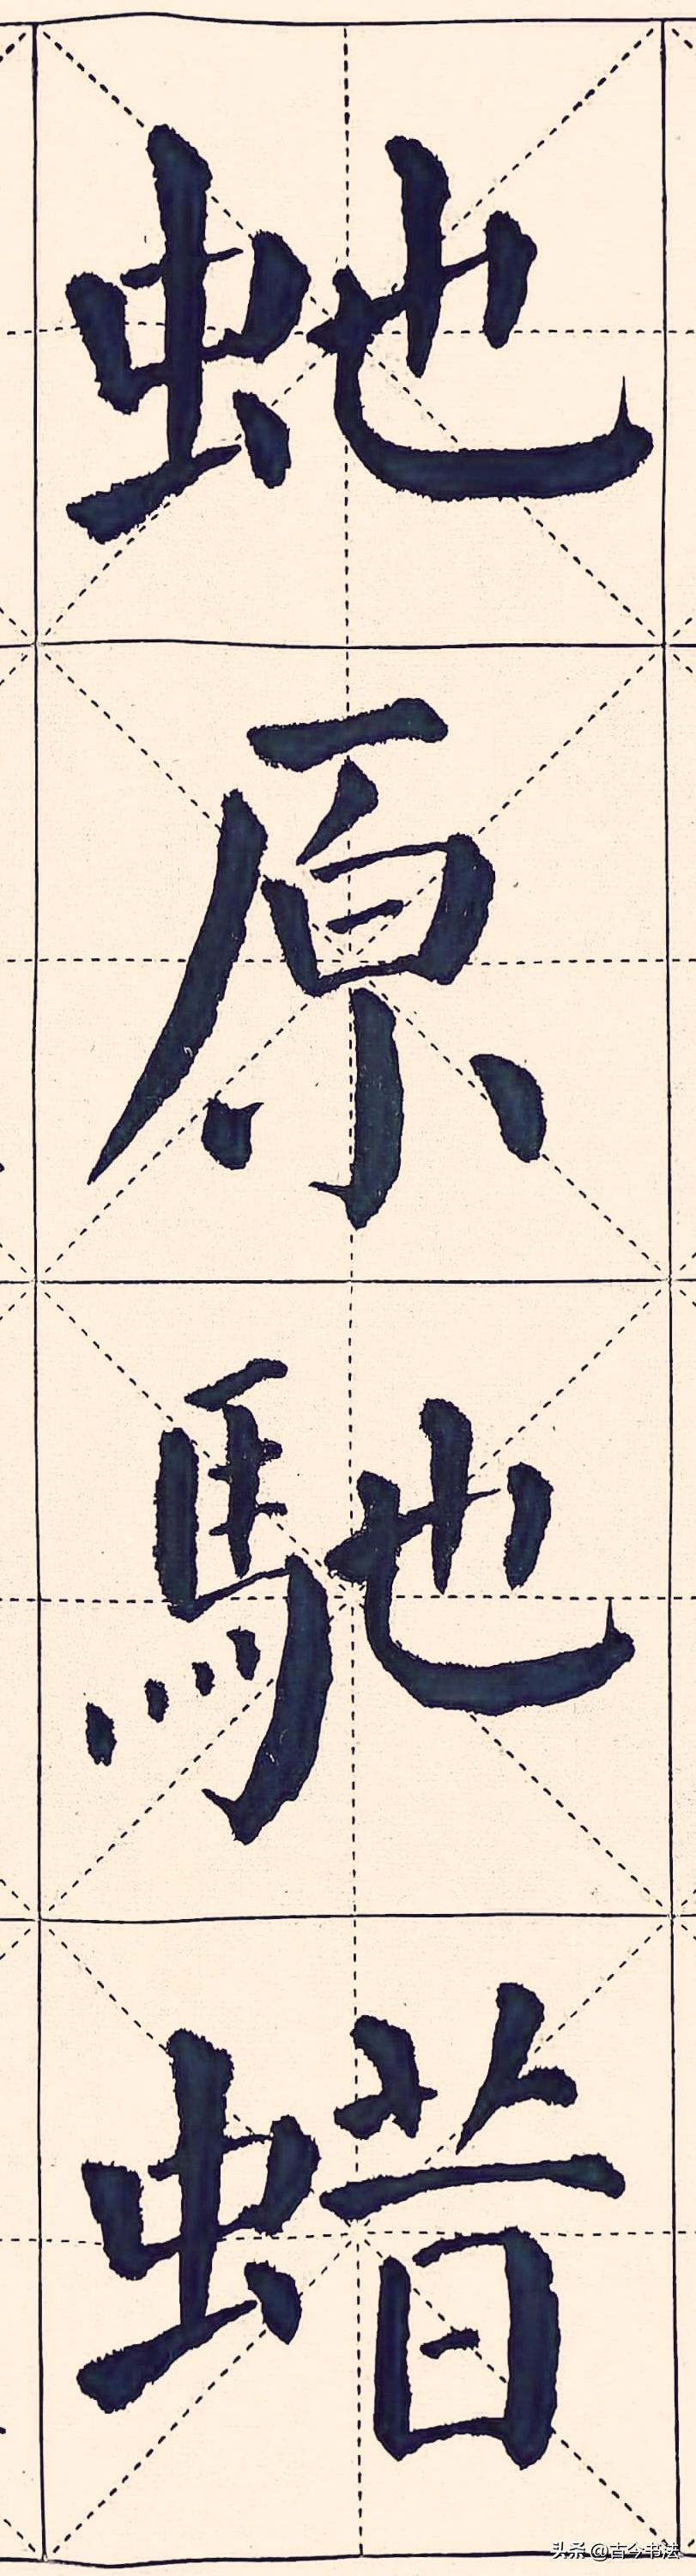 虵原馳蜡
头条 @古今书法